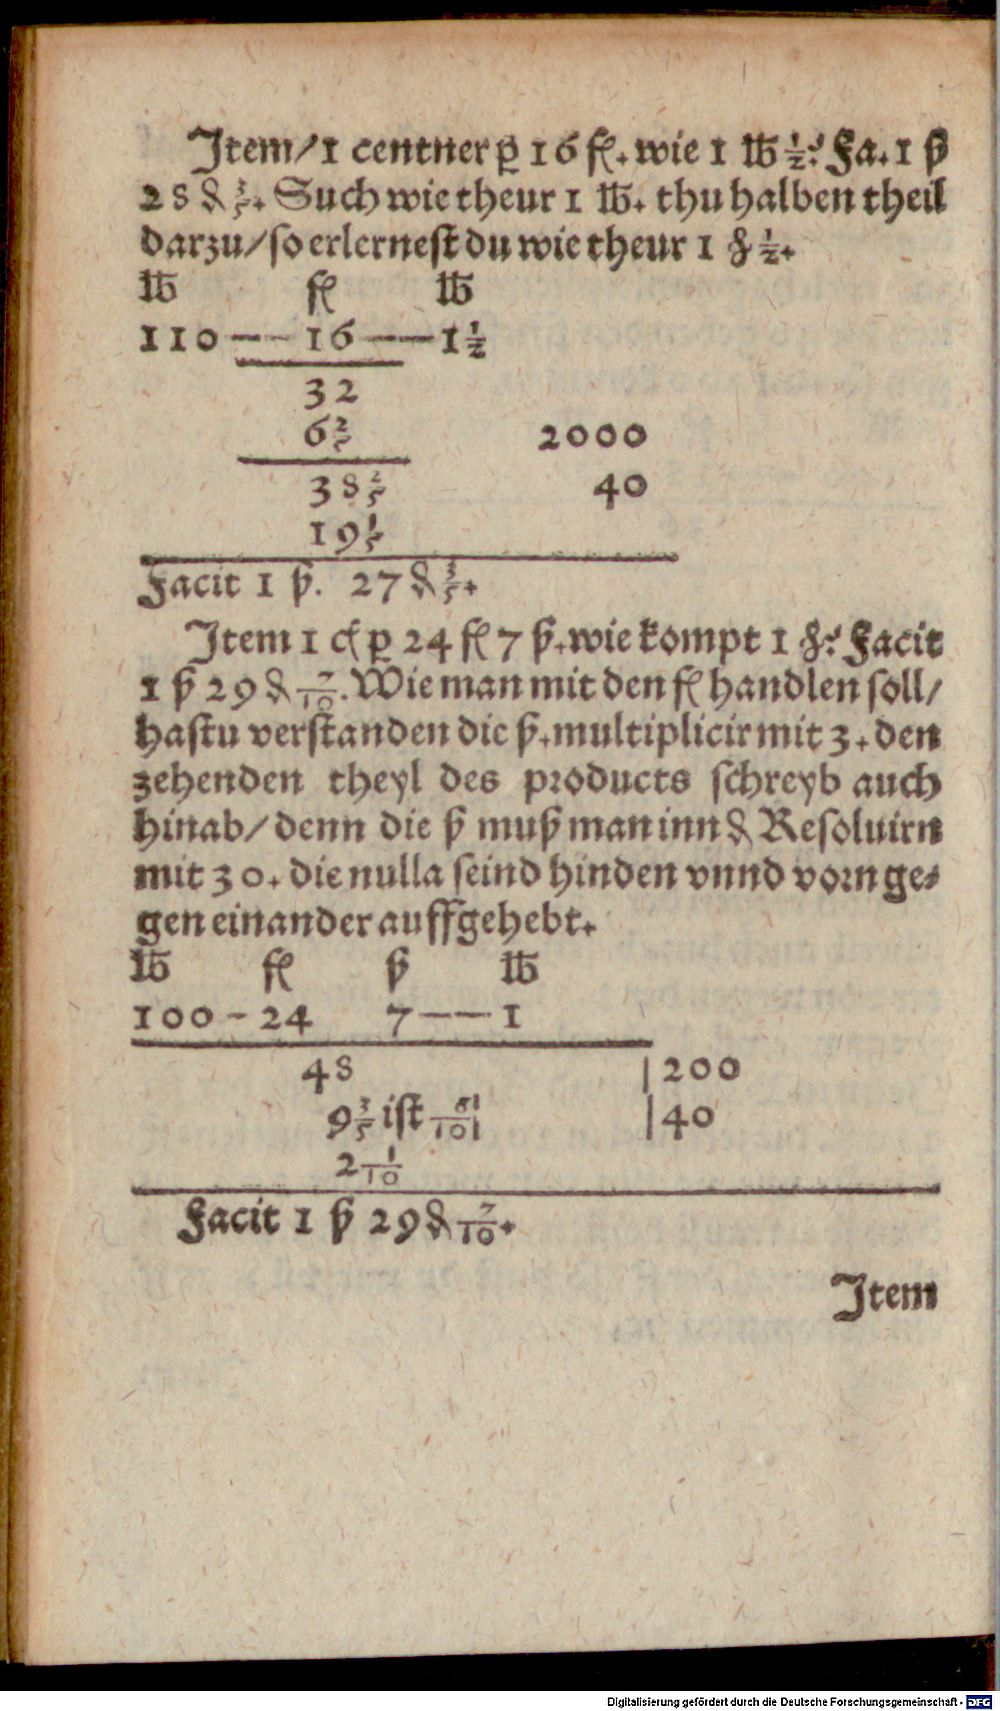 Item/1 centner ꝑ 16 fl. wie 1 ℔ ½? Fa. 1 ß
28 ₰ ⅗. Such wie theur 1 ℔. thu halben theil
darzu/so erlernest du wie theur 1 ℔ ½.
℔ fl ℔
110 — 16 — 1½
32
6⅖ 2000
38⅖ 40
19⅕
Facit 1 ß. 27 ₰ ⅗.
Item 1 ꝑ 24 fl 7 ß. wie kompt 1 ℔? Facit
1 ß 29 ₰ 7/10. Wie man mit den fl handlen soll/
hastu verstanden die ß. multiplicir mit 3. den
zehenden theyl des products schreyb auch
hinab/denn die ß muß man inn ₰ Resoluirn
mit 30. die nulla seind hinden vnnd vorn ge-
gen einander auffgehebt.
℔ fl ß ℔
100 - 24 7 — 1
48 |200
9⅗ ist 6/10| |40
2 1/10
Facit 1 ß 29 ₰ 7/10.
Item
Digitalisierung gefördert durch die Deutsche Forschungsgemeinschaft - DFG